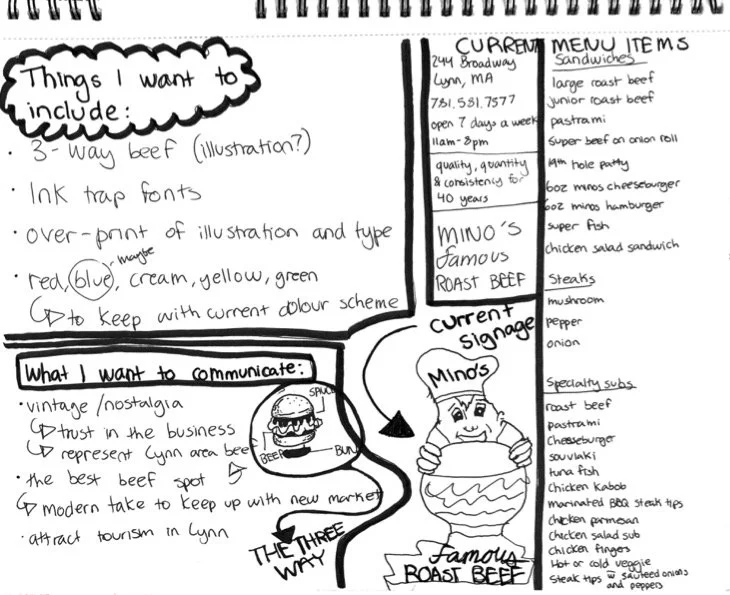 Things I want to
include:
• 3-way beef (illustration?)
• Ink trap fonts
• over-print of illustration and type
maybe
• red, blue, cream, yellow, green
to keep with current colour scheme
What I want to communicate:
• vintage/nostalgia
trust in the business
represent Lynn area beef
• the best beef spot
modern take to keep up with new market
• attract tourism in Lynn
SAUCE
BEEF
BUN
THE THREE
WAY
CURRENT MENU ITEMS
244 Broadway
Lynn, MA
781.581.7577
open 7 days a week
11am-8pm
quality, quantity
& consistency for
40 years
MINO'S
famous
ROAST BEEF
current
signage
Mino's
famous
ROAST BEEF
Sandwiches
large roast beef
junior roast beef
pastrami
super beef on onion roll
19th hole patty
6oz minos cheeseburger
6oz minos hamburger
super fish
chicken salad sandwich
Steaks
mushroom
pepper
onion
Specialty subs
roast beef
pastrami
Cheeseburger
souvlaki
tuna fish
Chicken Kabob
marinated BBQ steak tips
chicken parmesan
chicken salad sub
chicken fingers
Hot or cold veggie
steak tips w sauteed onions
and peppers